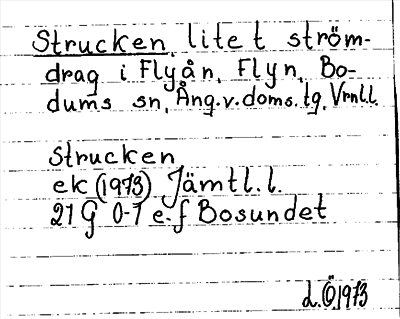 Strucken, litet ström-
drag i Flyån, Flyn, Bo-
dums sn, Ång.v.doms.tg, Vrnl.l.
Strucken
ek (1973) Jämtl.l.
21 G 0-1 e-f Bosundet
d.Ö, 1973